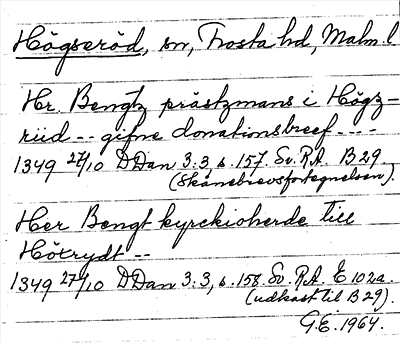 Högseröd, sn, Frosta hd, Malm. l
Hr. Bengtz prästzmans i Högz=
riid -- gifne donationsbreef ----
1349 27/10 DDan 3:3, s. 157. Sv. R.A. B 29
(Skånebrevsfortegnelsen).
Her Bengt kyrckioherde till
Hötrydt --
1349 27/10 DDan 3:3, s. 158 Sv. R.A. E 102a.
(udkast til B 29).
G.E. 1964.